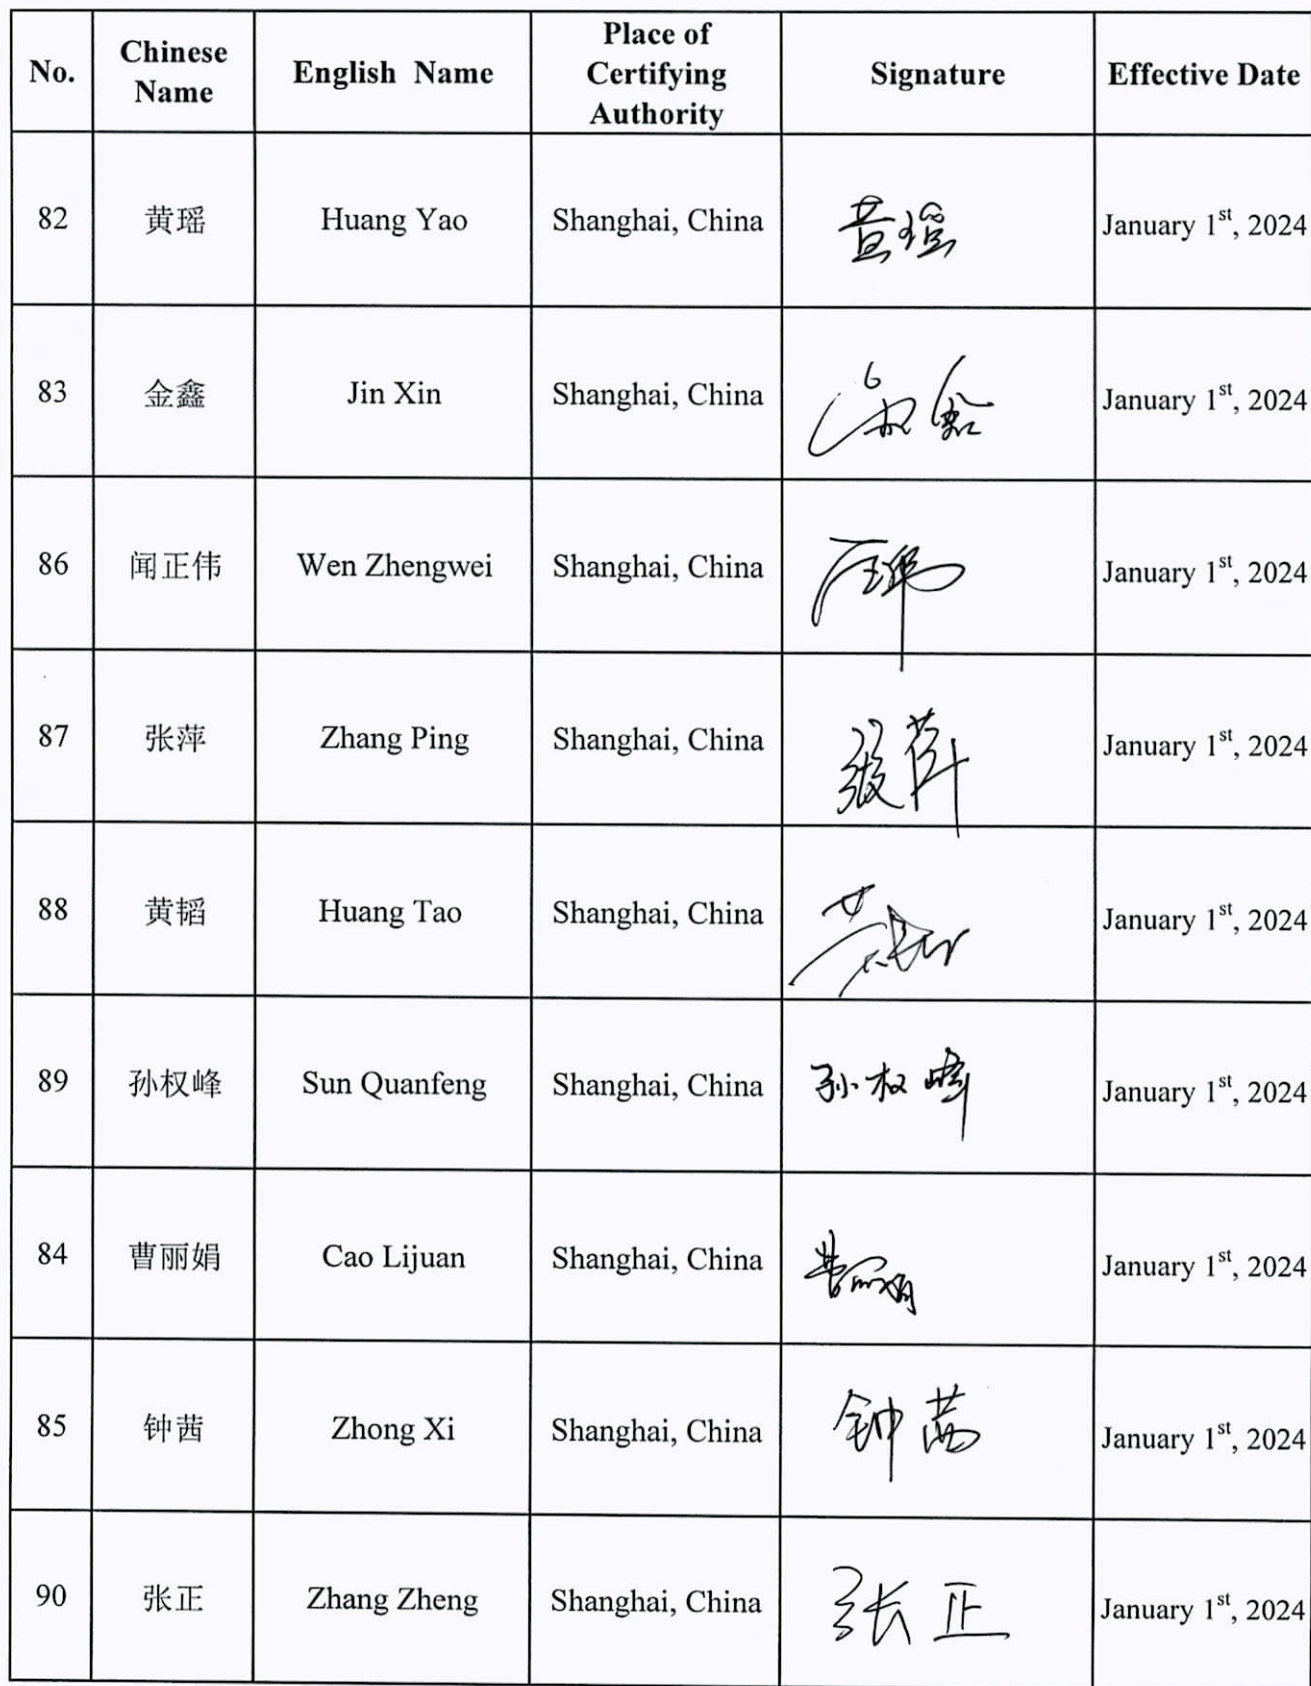 No. Chinese Name English Name Place of Certifying Authority Signature Effective Date
82 黄瑶 Huang Yao Shanghai, China 黄瑶 January 1st, 2024
83 金鑫 Jin Xin Shanghai, China January 1st, 2024
86 闻正伟 Wen Zhengwei Shanghai, China January 1st, 2024
87 张萍 Zhang Ping Shanghai, China 张萍 January 1st, 2024
88 黄韬 Huang Tao Shanghai, China January 1st, 2024
89 孙权峰 Sun Quanfeng Shanghai, China 孙权峰 January 1st, 2024
84 曹丽娟 Cao Lijuan Shanghai, China 曹丽娟 January 1st, 2024
85 钟茜 Zhong Xi Shanghai, China 钟茜 January 1st, 2024
90 张正 Zhang Zheng Shanghai, China 张正 January 1st, 2024